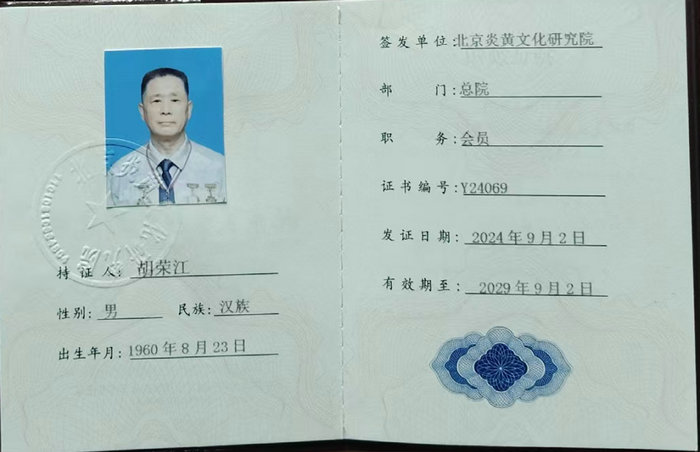 持证人: 胡荣江
性别: 男 民族: 汉族
出生年月: 1960年8月23日
签发单位: 北京炎黄文化研究院
部门: 总院
职务: 会员
证书编号: Y24069
发证日期: 2024年9月2日
有效期至: 2029年9月2日